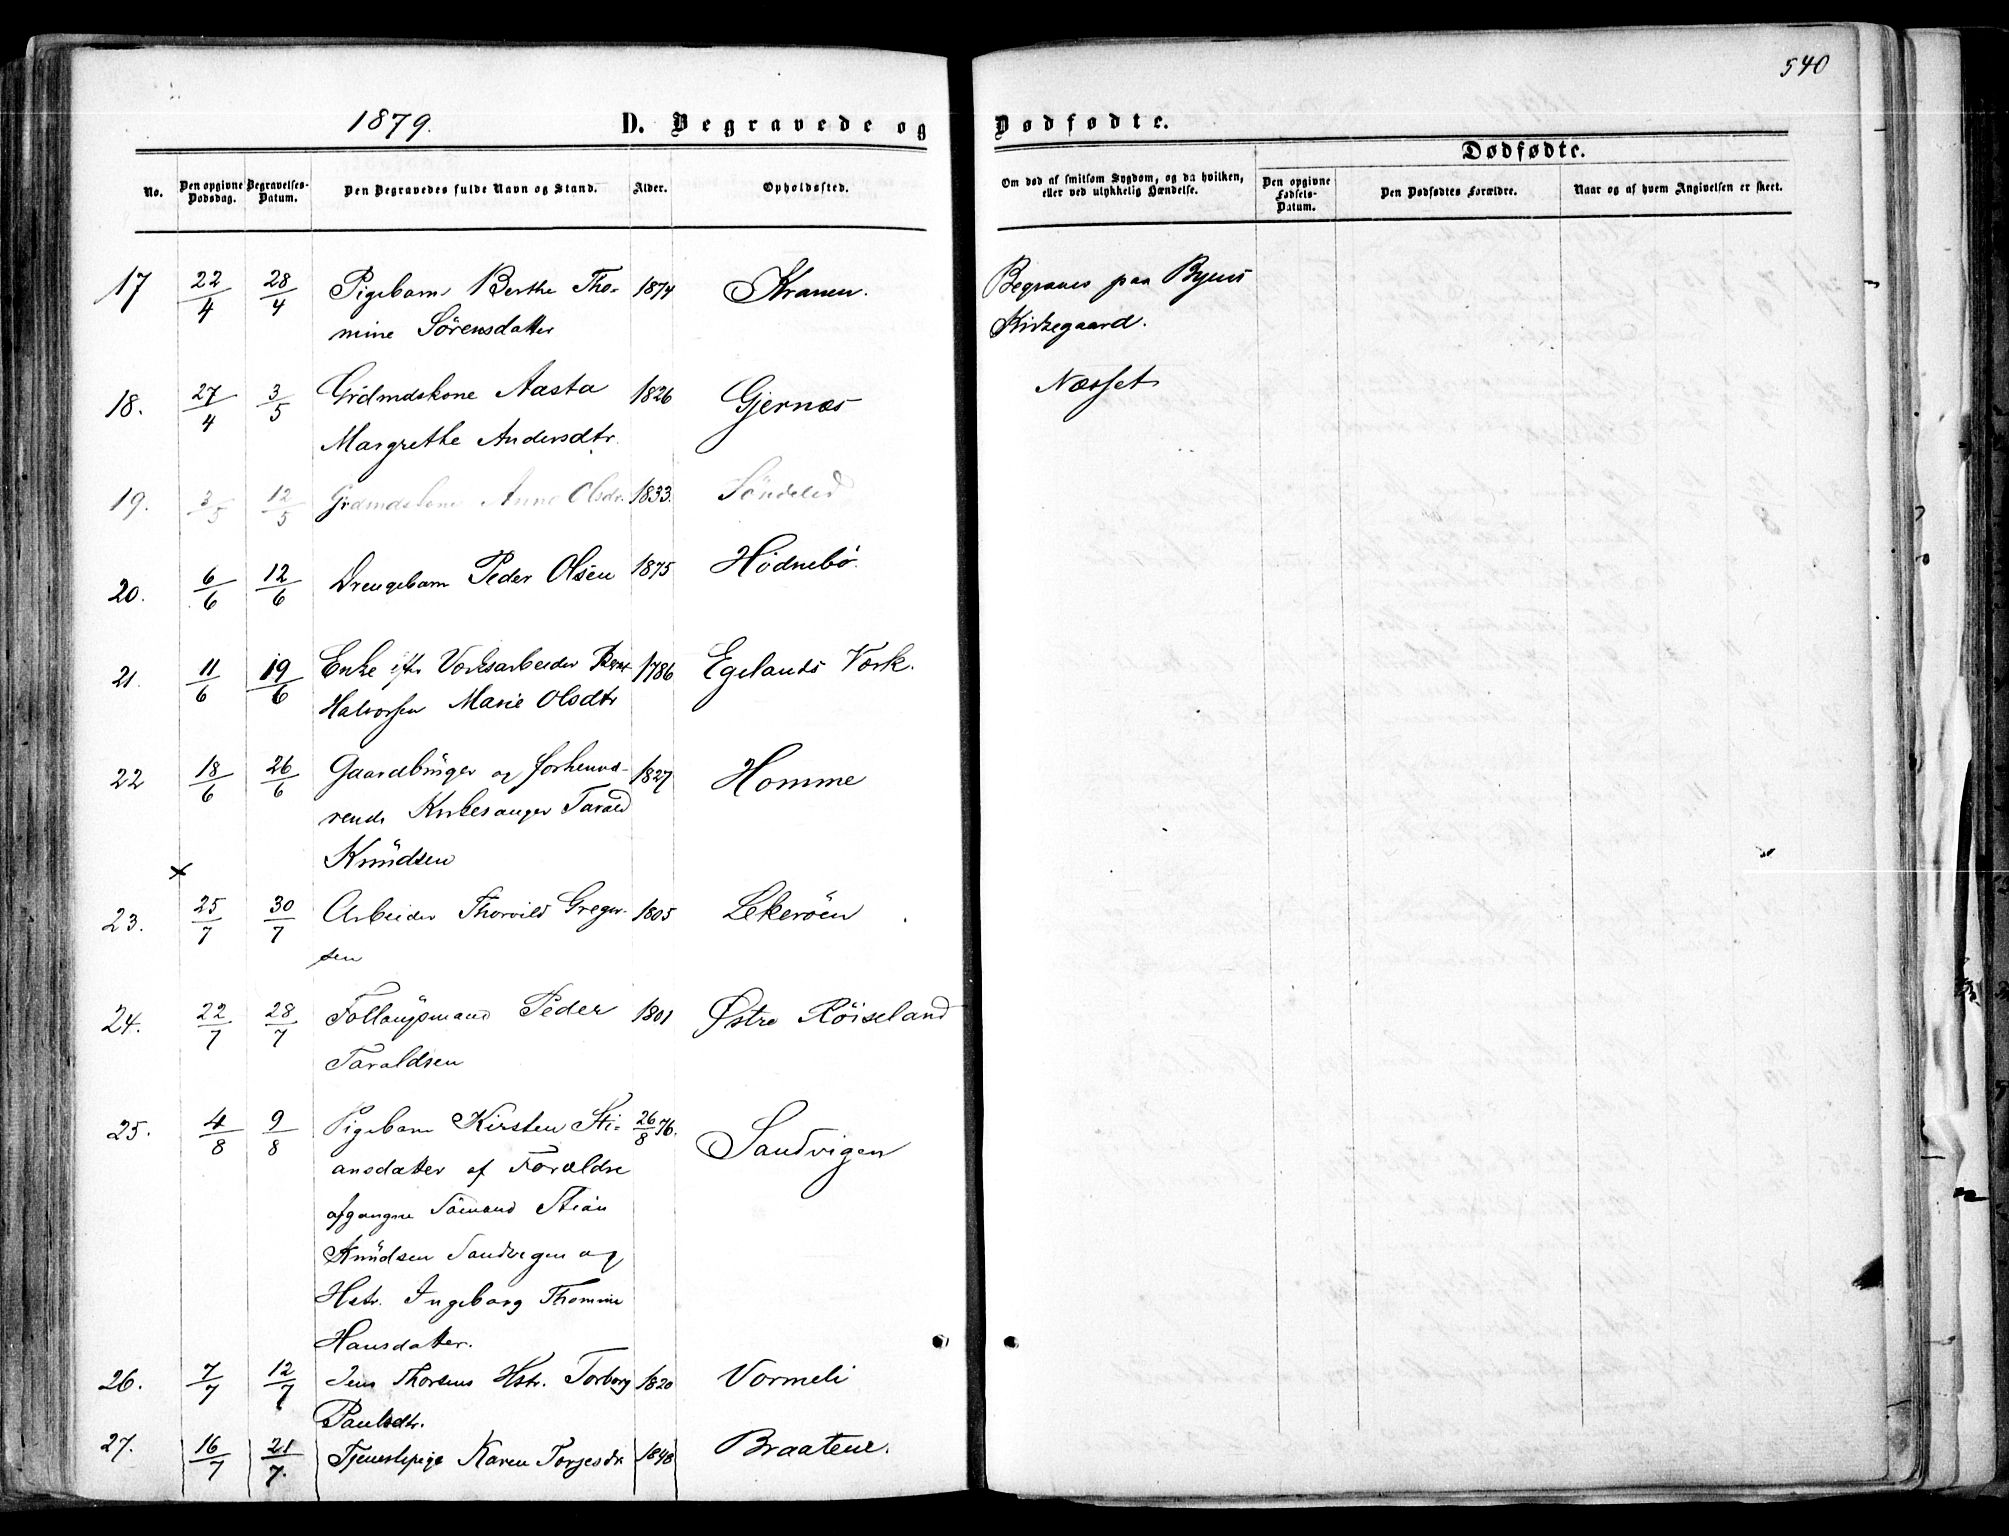 540
1879. D. Begravede og Dødfødte.
Dødfødte.
No. Den opgivne Dødsdag. Begravelses-Datum. Den Begravedes fulde Navn og Stand. Alder. Opholdssted. Om død af smitsom Sygdom, og da hvilken, eller ved ulykkelig Hændelse. Den opgivne Fødsels-Datum. Den Dødfødtes Forældre. Naar og af hvem Angivelsen er skeet.
17 22/4 28/4 Pigebarn Berthe Tho- 1874 Kranen. Begraves paa Byens
mine Sörensdatter Kirkegaard.
18. 27/4 3/5 Grdmdskone Aasta 1826 Gjernæs Næsset
Margrethe Andersdtr.
19. 3/5 12/5 Grdmdskone Anne Olsdr. 1833. Söndeled
20. 6/6 12/6 Drengebarn Peder Olsen 1875 Hödnebö.
21. 11/6 19/6 Enke eftr Verksarbeider Bent 1786 Egelands Verk.
Halvorsen Marie Olsdtr
22 18/6 26/6 Gaardbruger og forhenvæ- 1827 Homme
rende Kirkesanger Tarald
Knudsen
23. 25/7 30/7 Arbeider Thorvild Greger- 1805 Lekeröen
sen
24. 22/7 28/7 Follaugsmand Peder 1801 Østre Röiseland
Taraldsen
25. 4/8 9/8 Pigebarn Kirsten Sti- 26/8 76. Sandvigen
ansdatter af Forældre
afgangne Sömand Stian
Knudsen Sandvigen og
Hstr. Ingeborg Thomine
Hansdatter.
26. 7/7 12/7 Jens Thorsens Hstr. Torborg 1820 Vormeli
Paulsdtr.
27. 16/7 21/7. Tjenestepige Karen Torjesdr. 1848 Braatene.